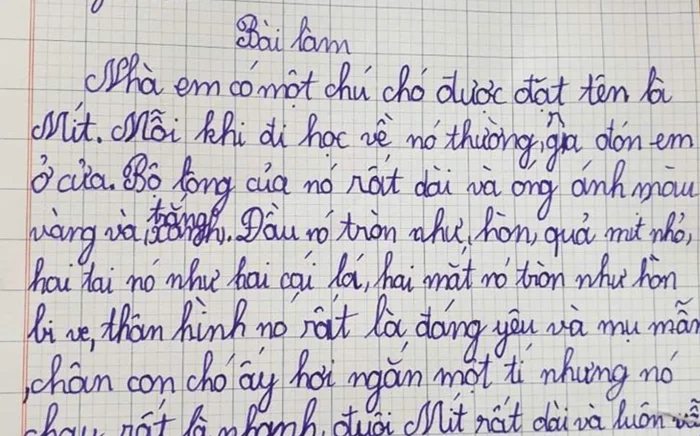 Bài làm
Nhà em có một chú chó được đặt tên là
Mít. Mỗi khi đi học về nó thường, ra đón em
ở cửa. Bộ lông của nó rất dài và óng ánh màu
vàng và trắng. Đầu nó tròn như, hòn, quả mít nhỏ,
hai tai nó như hai cái lá, hai mắt nó tròn như hòn
bi ve, thân hình nó rất là đáng yêu và mụ mẫn
, chân con chó ấy hơi ngắn một tí nhưng nó
chạy rất là nhanh, đuôi Mít rất dài và luôn vẫ